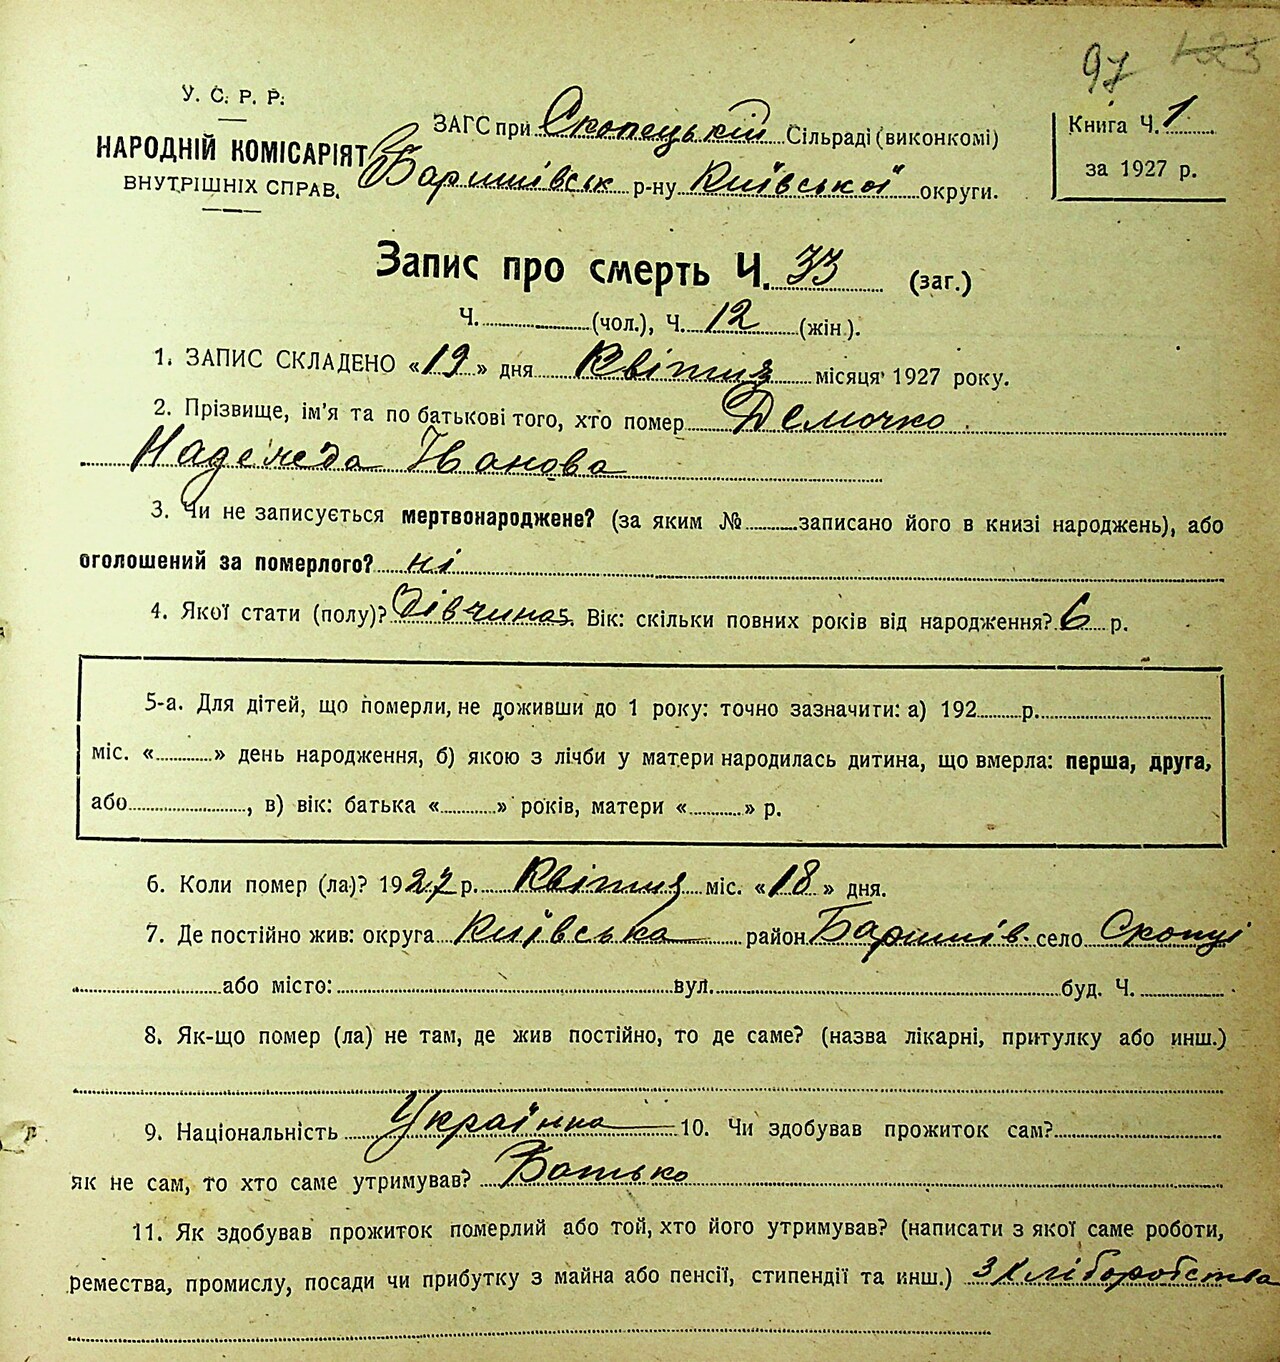 97 123
У. С. Р. Р.
НАРОДНІЙ КОМІСАРІЯТ
ВНУТРІШНІХ СПРАВ.
ЗАГС при Скопецькій Сільраді (виконкомі)
Баришівськ р-ну Київської округи.
Книга Ч. 1
за 1927 р.
Запис про смерть Ч. 33 (заг.)
Ч. (чол.), Ч. 12 (жін.).
1. ЗАПИС СКЛАДЕНО «19» дня Квітня місяця 1927 року.
2. Прізвище, ім'я та по батькові того, хто помер Демочко
Надежда Іванова
3. Чи не записується мертвонароджене? (за яким № записано його в книзі народжень), або
оголошений за померлого? ні
4. Якої стати (полу)? Дівчина 5. Вік: скільки повних років від народження? 6 р.
5-а. Для дітей, що померли, не доживши до 1 року: точно зазначити: а) 192 р.
міс. « » день народження, б) якою з лічби у матери народилась дитина, що вмерла: перша, друга,
або , в) вік: батька « » років, матери « » р.
6. Коли помер (ла)? 1927 р. Квітня міс. «18» дня.
7. Де постійно жив: округа Київська район Баришів. село Скопці
або місто: вул. буд. Ч.
8. Як-що помер (ла) не там, де жив постійно, то де саме? (назва лікарні, притулку або инш.)
9. Національність Українка 10. Чи здобував прожиток сам?
як не сам, то хто саме утримував? Батько
11. Як здобував прожиток померлий або той, хто його утримував? (написати з якої саме роботи,
ремества, промислу, посади чи прибутку з майна або пенсії, стипендії та инш.) З Хліборобства